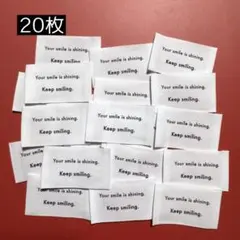 20枚
Your smile is shining.
Your smile is shining.
Keep smiling.
Your smile is shining.
Keep smiling.
Your smile is shining.
Keep smiling.
Your smile is shining.
Keep smiling.
Your smile is shining.
Keep smiling.
Your smile is shining.
Keep smiling.
Your smile is shining.
Keep smiling.
Your smile is shining.
Keep smiling.
Your smile is shining.
Keep smiling.
Your smile is shining.
Keep smiling.
Your smile is shining.
Keep smiling.